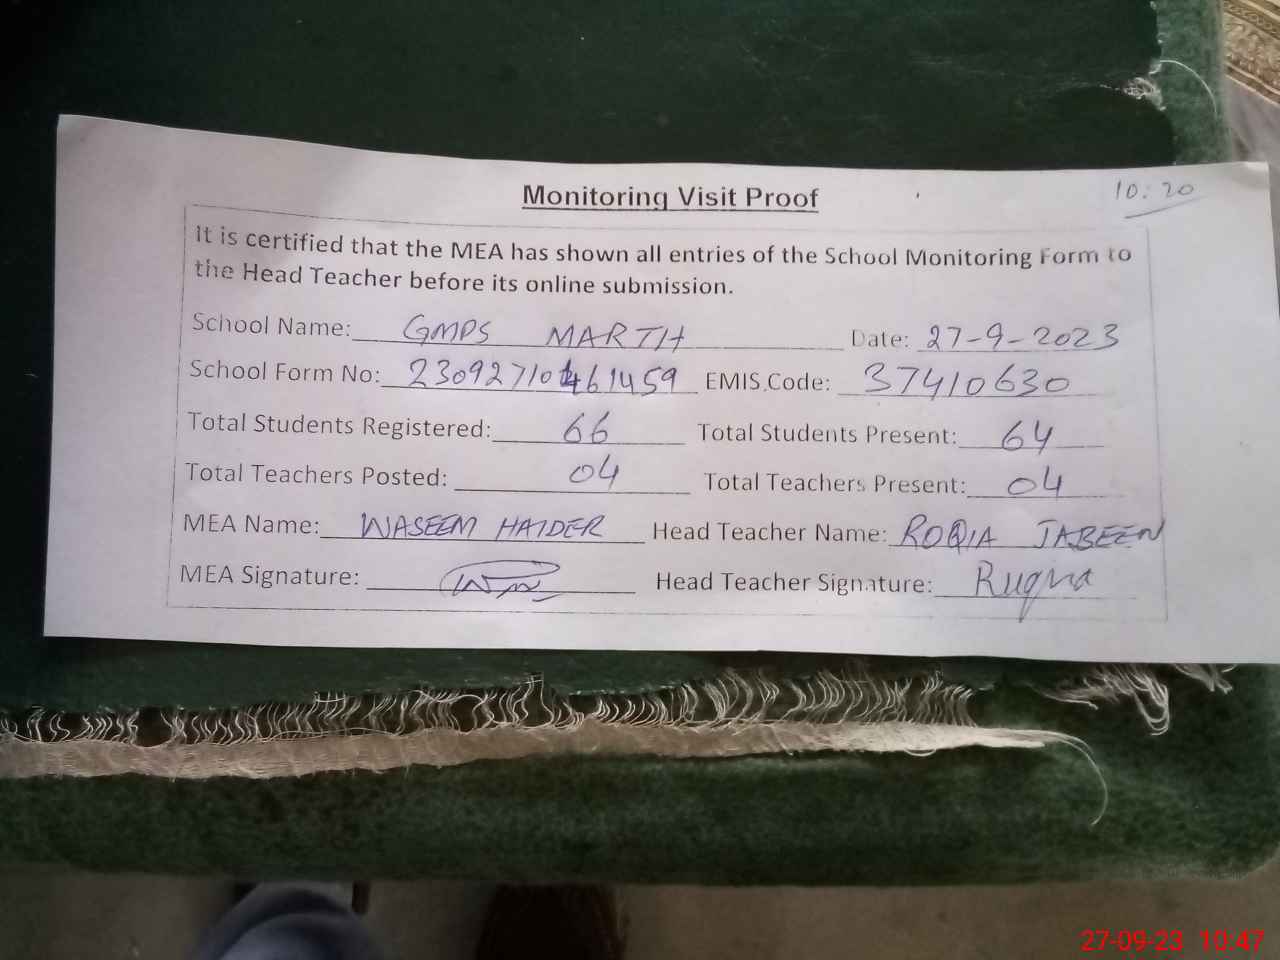 Monitoring Visit Proof
10:20
It is certified that the MEA has shown all entries of the School Monitoring Form to
the Head Teacher before its online submission.
School Name: GMPS MARTH Date: 27-9-2023
School Form No: EMIS Code: 37410630
Total Students Registered: 66 Total Students Present: 64
Total Teachers Posted: 04 Total Teachers Present: 04
MEA Name: WASEEM HAIDER Head Teacher Name: ROQIA JABEEN
MEA Signature: Head Teacher Signature: Ruqia
27-09-23 10:47